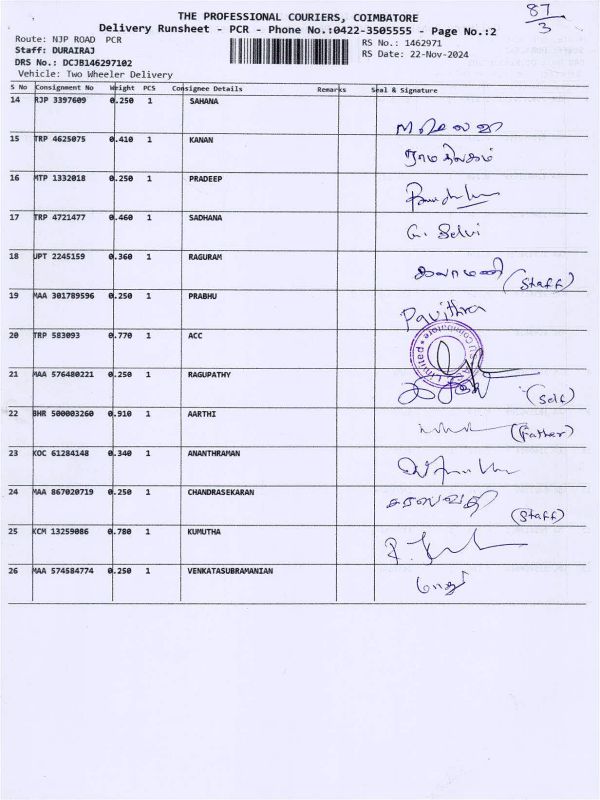 THE PROFESSIONAL COURIERS, COIMBATORE
87/3
Delivery Runsheet - PCR - Phone No.:0422-3505555 - Page No.:2
Route: NJP ROAD PCR
RS No.: 1462971
Staff: DURAIRAJ
RS Date: 22-Nov-2024
DRS No.: DCJB146297102
Vehicle: Two Wheeler Delivery
S No Consignment No Weight PCS Consignee Details Remarks Seal & Signature
14 RJP 3397609 0.250 1 SAHANA
15 TRP 4625075 0.410 1 KANAN
ராமதிலகம்
16 MTP 1332018 0.250 1 PRADEEP
17 TRP 4721477 0.460 1 SADHANA
G. Selvi
18 UPT 2245159 0.360 1 RAGURAM
கலாமணி (Staff)
19 MAA 301789596 0.250 1 PRABHU
Pavithra
20 TRP 583093 0.770 1 ACC
Limited Coimbatore
21 MAA 576480221 0.250 1 RAGUPATHY
(Self)
22 BHR 500003260 0.910 1 AARTHI
(Father)
23 KOC 61284148 0.340 1 ANANTHRAMAN
24 MAA 867020719 0.250 1 CHANDRASEKARAN
சரஸ்வதி
(Staff)
25 KCM 13259086 0.780 1 KUMUTHA
26 MAA 574584774 0.250 1 VENKATASUBRAMANIAN